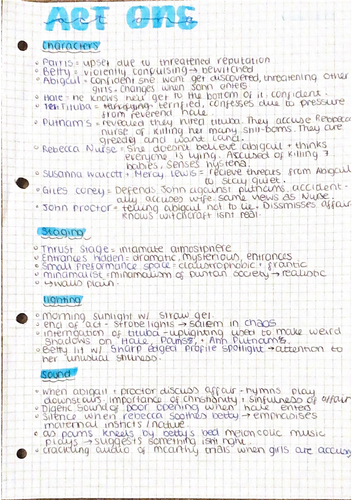 ACT ONE
Characters
Parris = upset due to threatened reputation
Betty = violently convulsing → bewitched
Abigail = confident she won't get discovered, threatening other
girls. Changes when John enters.
Hale = he knows he'll get to the bottom of it, confident.
Tituba = terrified, confesses due to pressure
from reverend hale
Putnams = revealed they hired tituba. They accuse Rebecca
nurse of killing her many still-borns. They are
greedy and want land.
Rebecca Nurse = She doesn't believe abigail + thinks
everyone is lying. Accused of killing 7
babies, senses hysteria.
Susanna Walcott + Mercy Lewis = recieve threats from Abigail
to stay quiet.
Giles corey = Defends John against putnams, accident-
ally accuses wife. same views as Nurse.
John proctor = telling abigail not to lie. Dismisses affair
Knows witchcraft isnt real.
Staging
Thrust stage = intamate atmosphere
Entrances hidden = dramatic, mysterious, entrances
Small preformance space = claustrophobic + frantic
minimalist = minimalism of puritan society → realistic
↳ walls plain.
Lighting
morning sunlight w/ straw gel
end of act - strobe lights → salem in chaos
interrogation of tituba - uplighting used to make weird
shadows on Hale, Parris, + Ann Putnams.
Betty lit w/ sharp edged profile spotlight → attention to
her unusual stillness.
Sound
when abigail + proctor discuss affair - hymns play
downstairs. importance of christianity + sinfulness of affair
Digetic sound of door opening when hale enters
Silence when rebecca soothes betty → emphasises
maternal instincts / native
as parris kneels by betty's bed meloncolic music
plays → suggests something isnt right.
crackling audio of mcarthy trials when girls are accusing